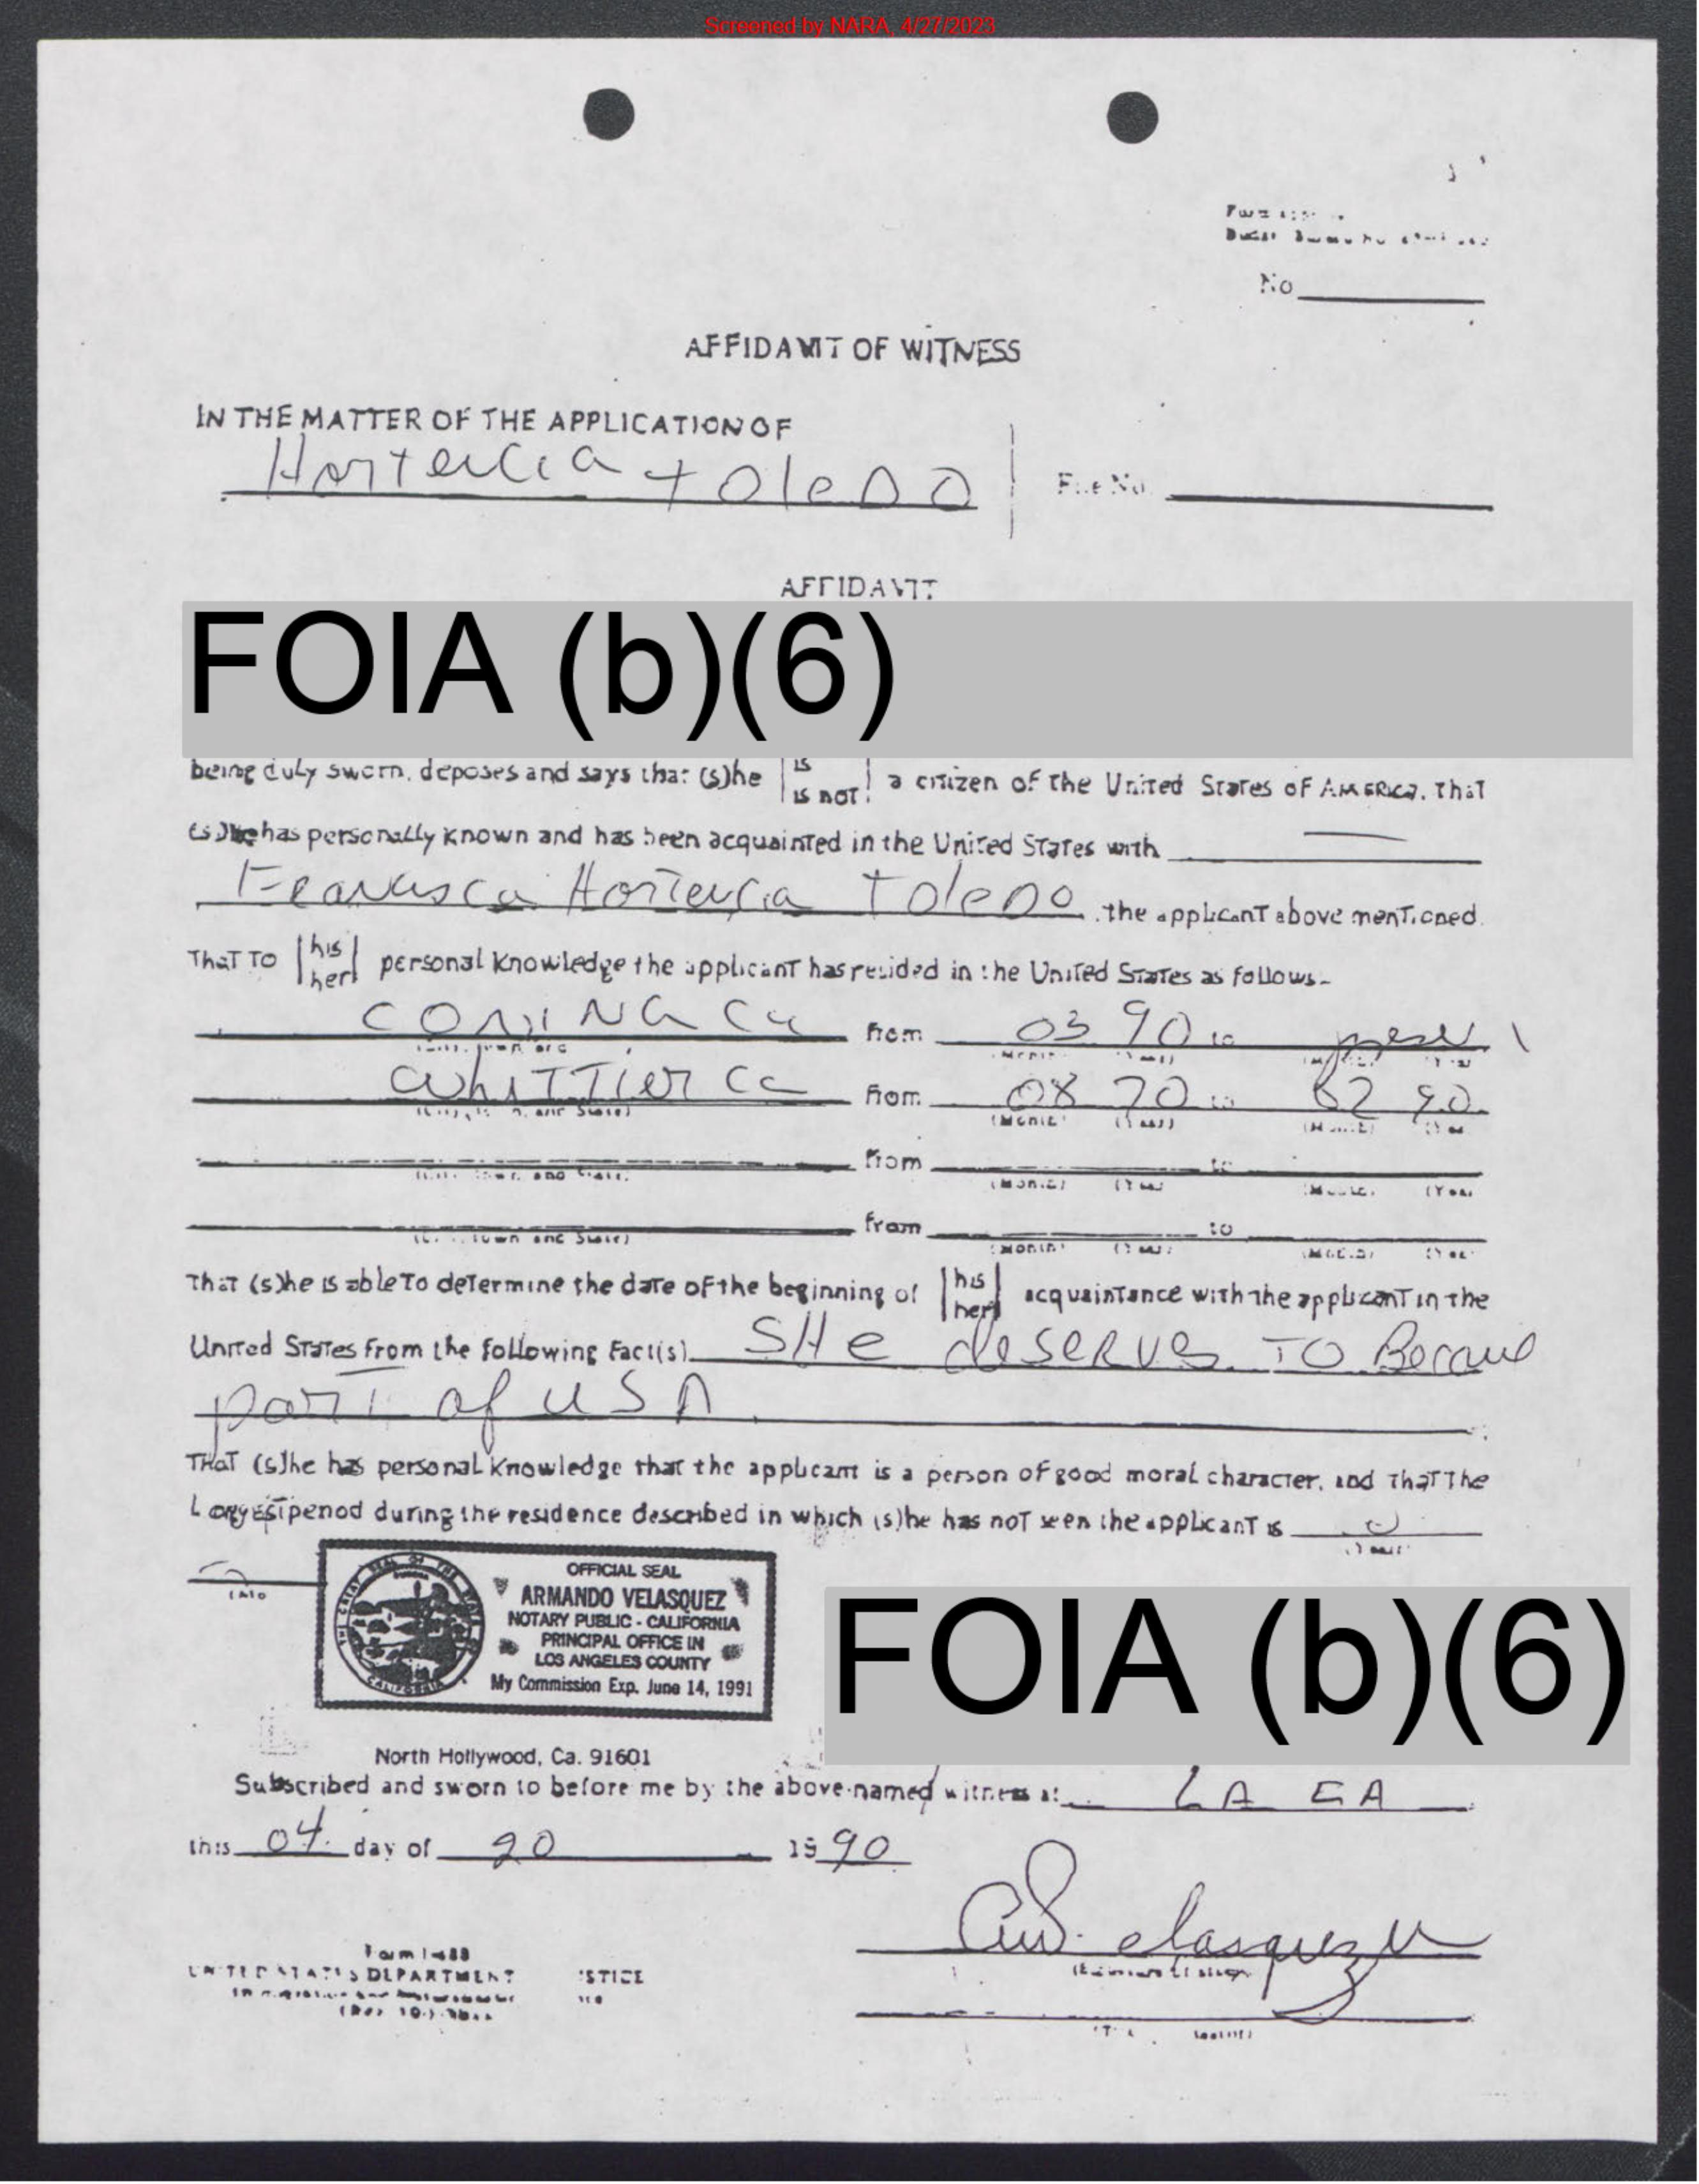 Screened by NARA, 4/27/2023
No
AFFIDAVIT OF WITNESS
IN THE MATTER OF THE APPLICATION OF
Hortencia Toledo
File No.
AFFIDAVIT
FOIA (b)(6)
being duly sworn, deposes and says that (s)he is is not a citizen of the United States of America. That
(s)he has personally known and has been acquainted in the United States with
Francisca Hortencia Toledo, the applicant above mentioned.
That to his her personal knowledge the applicant has resided in the United States as follows-
Ca from 03 90 to
Whittier Ca from 08 70 to 02 90
(City, Town, and State) (Month) (Year) (Month) (Year)
from to
(City, Town and State) (Month) (Year) (Month) (Year)
from to
(City, Town and State) (Month) (Year) (Month) (Year)
That (s)he is able to determine the date of the beginning of his her acquaintance with the applicant in the
United States from the following fact(s) SHe deserves TO
part of USA
That (s)he has personal knowledge that the applicant is a person of good moral character, and that the
Longest period during the residence described in which (s)he has not seen the applicant is 0
OFFICIAL SEAL
ARMANDO VELASQUEZ
NOTARY PUBLIC - CALIFORNIA
PRINCIPAL OFFICE IN
LOS ANGELES COUNTY
My Commission Exp. June 14, 1991
FOIA (b)(6)
North Hollywood, Ca. 91601
Subscribed and sworn to before me by the above-named witness at LA CA
this 04 day of 20 1990
Form I-488
UNITED STATES DEPARTMENT JUSTICE